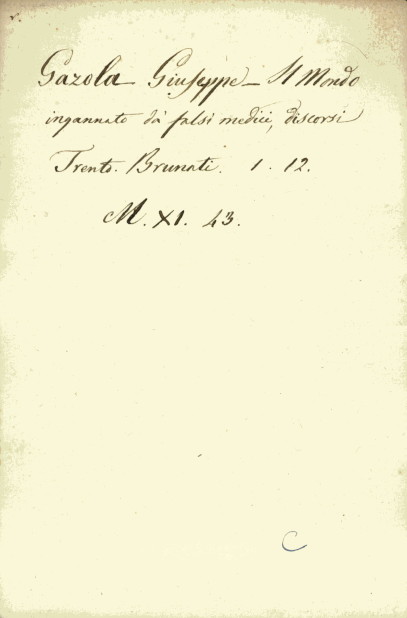 Gazola Giuseppe - Il Mondo
ingannato da' falsi medici, discorsi
Trento. Brunati. 1. 12.
M. XI. 43.
C